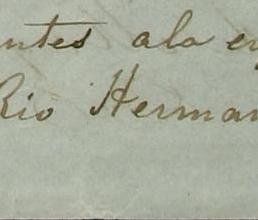 ntes ala en
Rio Herman